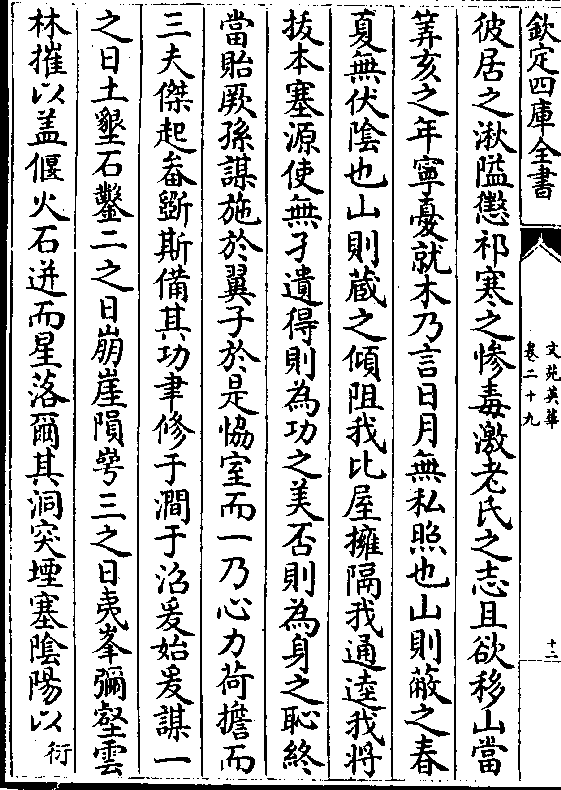 欽定四庫全書
文苑英華
卷二十九
十三
彼居之湫隘懲祁寒之慘毒激老氏之志且欲移山當
筭亥之年寧憂就木乃言日月無私照也山則蔽之春
夏無伏陰也山則蔵之傾阻我比屋擁隔我通逵我將
拔本塞源使無孑遺得則為功之美否則為身之恥終
當貽厥孫謀施於翼子於是恊室而一乃心力荷擔而
三夫傑起畚斸斯備其功聿修于澗于沼爰始爰謀一
之日土墾石鑿二之日崩崖隕崿三之日夷峯彌壑雲
林摧以盖偃火石迸而星落爾其洞突堙塞陰陽以衍